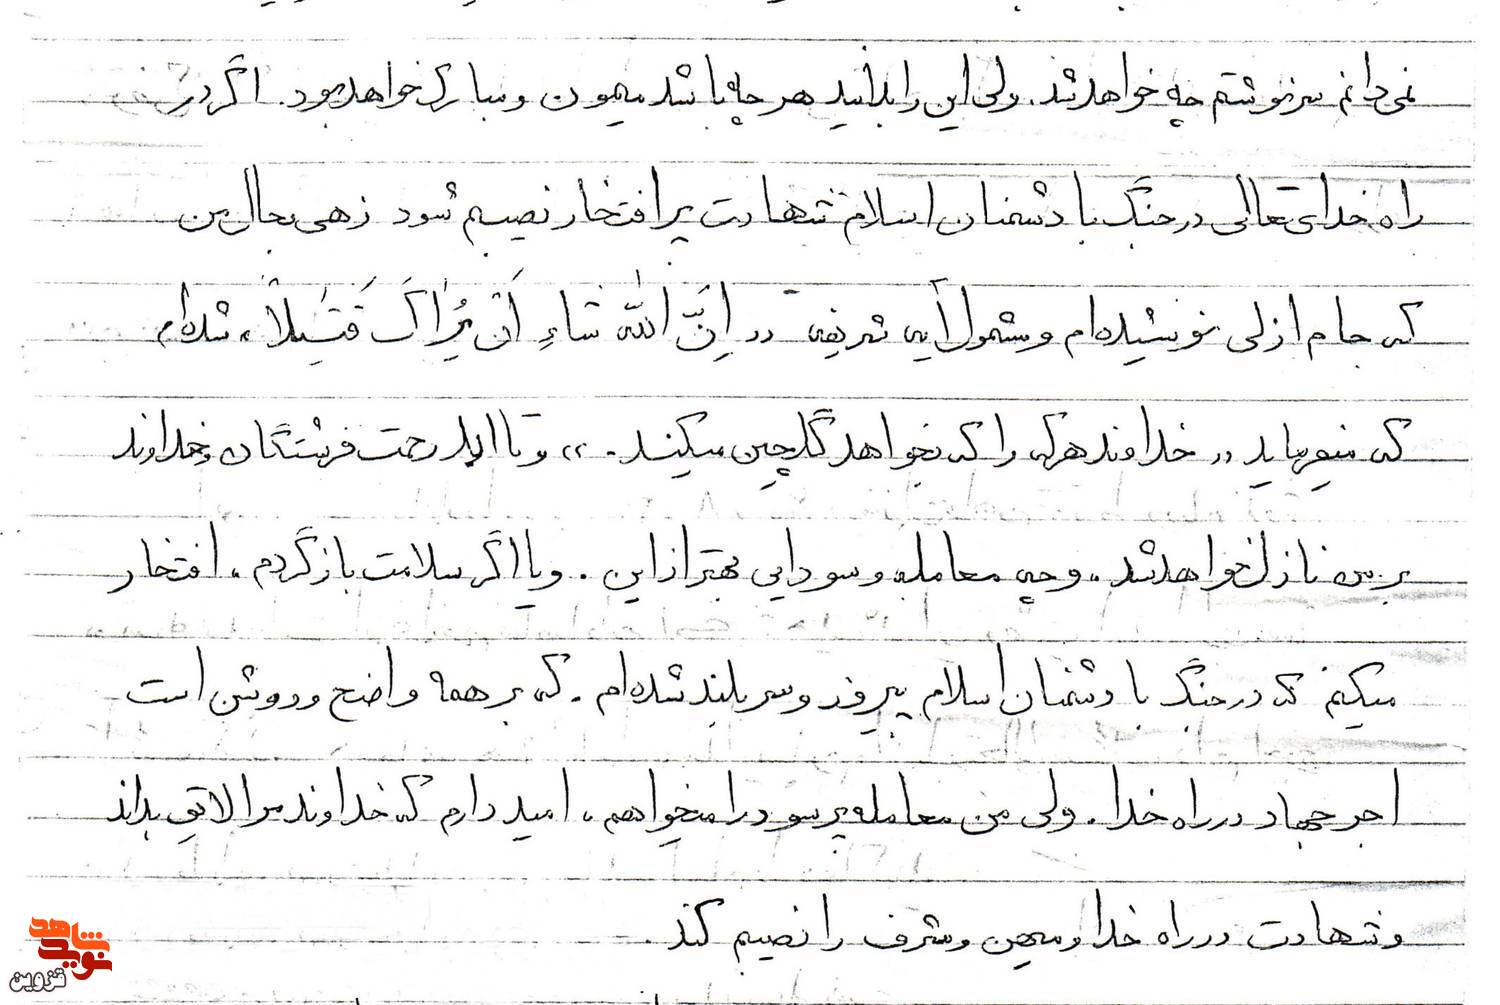 نمی دانم سرنوشتم چه خواهد شد. ولی این را بدانید هر چه باشد میمون و مبارک خواهد بود. اگر در
راه خدای تعالی در جنگ با دشمنان اسلام شهادت پر افتخار نصیبم شود زهی بحال من
که جام ازلی نوشیده‌ام و مشمول آیه شریفه «اِنَّ اللّٰه شاءِ اَن یُراکَ قَتیلاً» شده‌ام
که میفرماید «خداوند هر که را که بخواهد گلچین میکند.» و تا ابد رحمت فرشتگان و خداوند
بر من نازل خواهد شد، و چه معامله و سودایی بهتر از این. و یا اگر سلامت بازگردم، افتخار
میکنم که در جنگ با دشمنان اسلام پیروز و سربلند شده‌ام. که بر همه واضح و روشن است
اجر جهاد در راه خدا. ولی من معامله پر سود را میخواهم، امید دارم که خداوند مرا لایق بداند
و شهادت در راه خدا و میهن و شرف را نصیبم کند.
نوید شاهد
قزوین